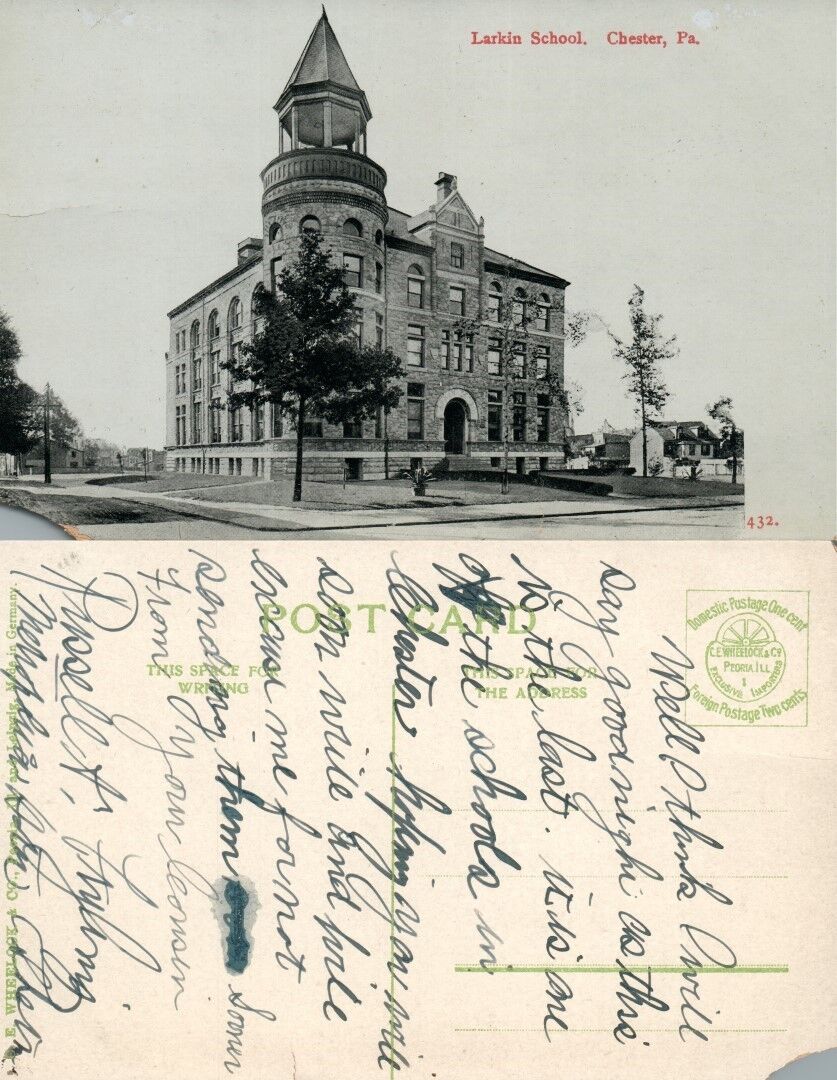 Larkin School. Chester, Pa.
432.
POST CARD
THIS SPACE FOR
WRITING
THIS SPACE FOR
THE ADDRESS
Domestic Postage One cent
C.E. WHEELOCK & Co
PEORIA, ILL
1
EXCLUSIVE IMPORTERS
Foreign Postage Two cents
C. E. WHEELOCK & CO., Peoria, Ill. and Leipzig. Made in Germany.
Well I think I will
say goodnight as this
is the last. it is one
of the schools in
Chester. I hope you will
soon write and
me for not
sending them sooner
from your cousin
Russell H.